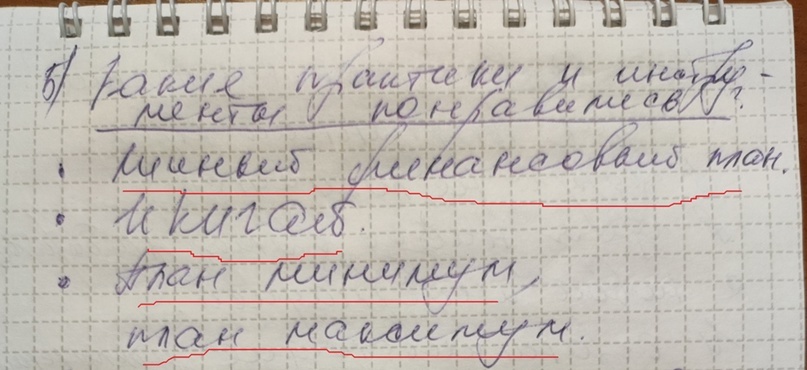 5) Какие практики и инстру-
менты понравились?
• Личный финансовый план.
• Икигай.
• План минимум,
план максимум.